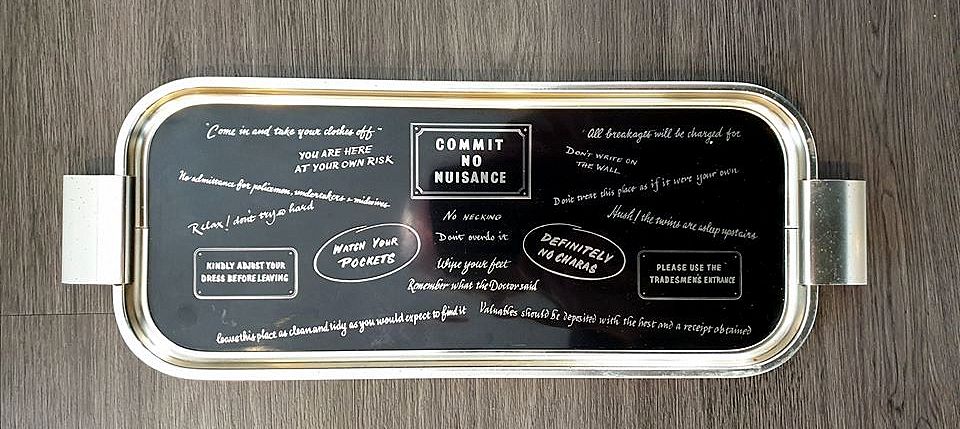 "Come in and take your clothes off"
YOU ARE HERE
AT YOUR OWN RISK
No admittance for policemen, undertakers & midwives
Relax! don't try so hard
KINDLY ADJUST YOUR
DRESS BEFORE LEAVING
WATCH YOUR
POCKETS
COMMIT
NO
NUISANCE
NO NECKING
Don't overdo it
Wipe your feet
Remember what the Doctor said
All breakages will be charged for
DON'T WRITE ON
THE WALL
Don't treat this place as if it were your own
Hush! the twins are asleep upstairs
DEFINITELY
NO CHARAS
PLEASE USE THE
TRADESMENS ENTRANCE
leave this place as clean and tidy as you would expect to find it
Valuables should be deposited with the host and a receipt obtained